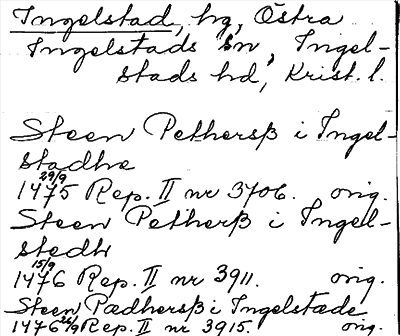 Ingelstad, hg, Östra
Ingelstads sn, Ingel-
stads hd, Krist. l.
Steen Pethersß i Ingel-
stadhe
29/9
1475 Rep. II nr 3706. orig.
Steen Petherß i Ingel-
stedh
15/9
1476 Rep. II nr 3911. orig.
Steen Pædherß i Ingelstæde
1476 26/9 Rep. II nr 3915. orig.